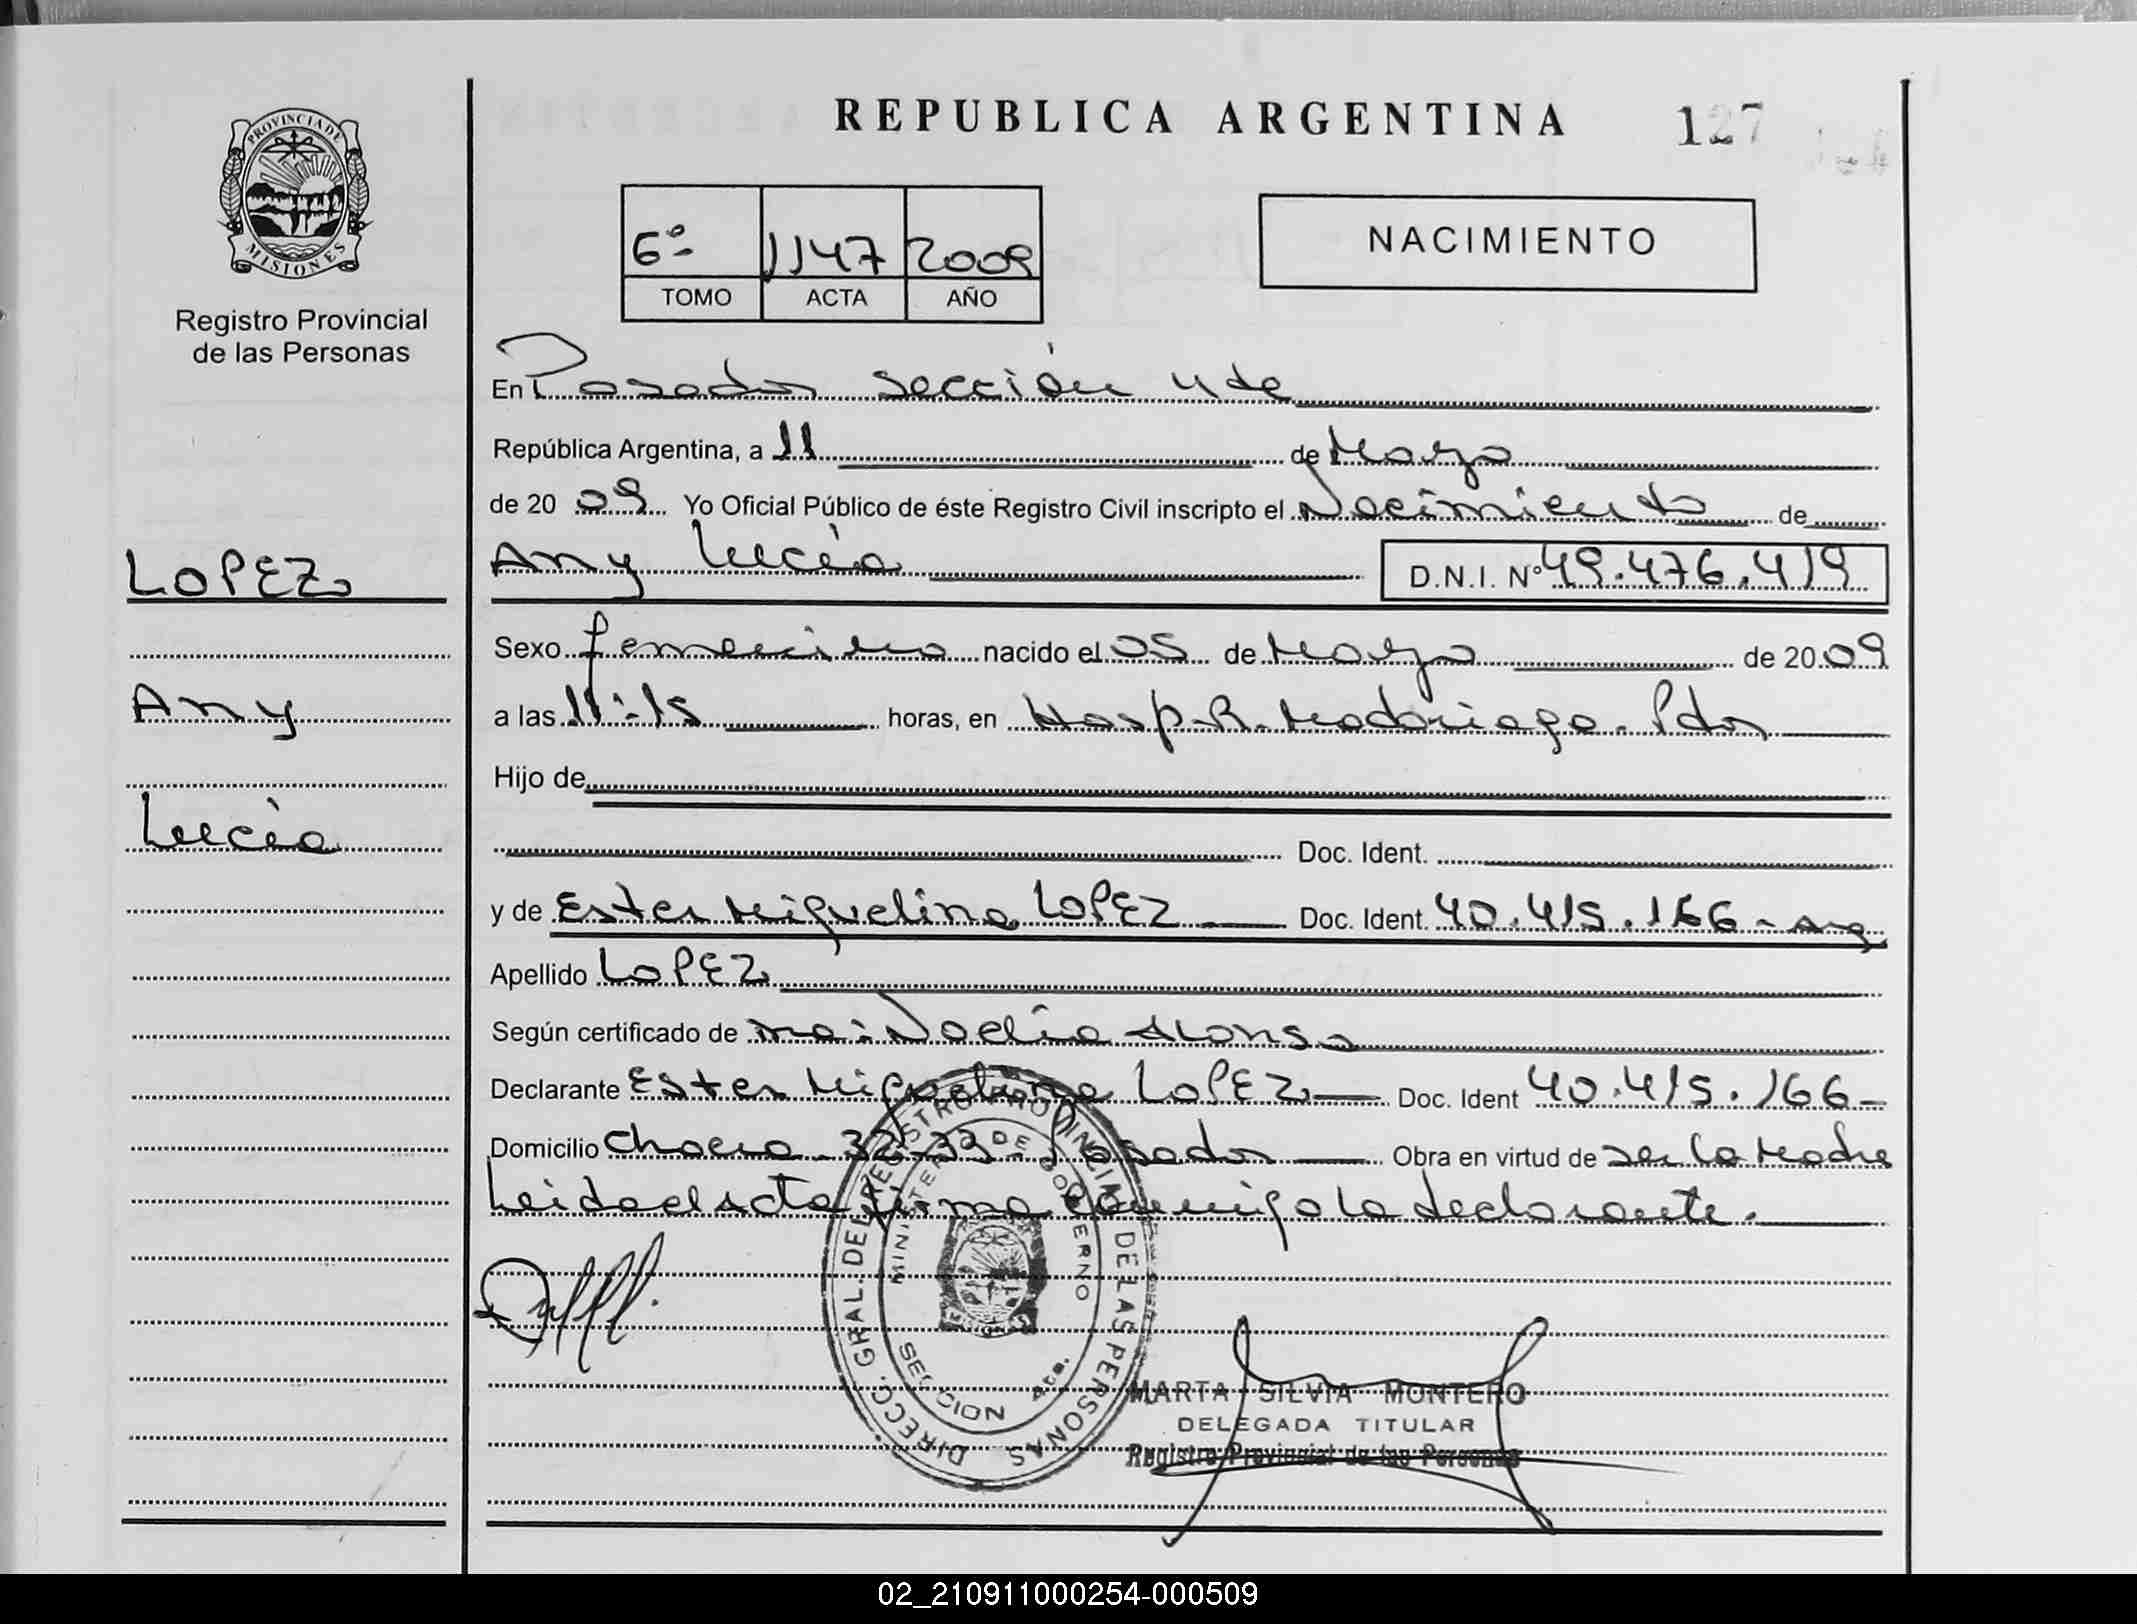 REPUBLICA ARGENTINA 127
PROVINCIA DE
MISIONES
Registro Provincial
de las Personas
6º 1147 2009
TOMO ACTA AÑO
NACIMIENTO
En Posadas sección 4ta
República Argentina, a 11 de Mayo
de 20 09 Yo Oficial Público de éste Registro Civil inscripto el Nacimiento de
Any Lucía D.N.I. Nº 49.476.419
LOPEZ
Any
Lucía
Sexo femenino nacido el 05 de Mayo de 20 09
a las 11:15 horas, en Hosp. R. Madariaga. Pdas
Hijo de
Doc. Ident.
y de Ester Miguelina LOPEZ Doc. Ident. 40.415.166 - Arg
Apellido LOPEZ
Según certificado de Ma: Noelia Alonso
Declarante Ester Miguelina LOPEZ Doc. Ident 40.415.166 -
Domicilio Chacra 32-33 - Posadas Obra en virtud de ser la Madre
Leida el Acta firma conmigo la declarante.
DIRECC. GRAL. DEL REGISTRO PROVINCIAL DE LAS PERSONAS
MINISTERIO DE GOBIERNO
SECCION 4ta.
MARTA SILVIA MONTERO
DELEGADA TITULAR
Registro Provincial de las Personas
02_210911000254-000509